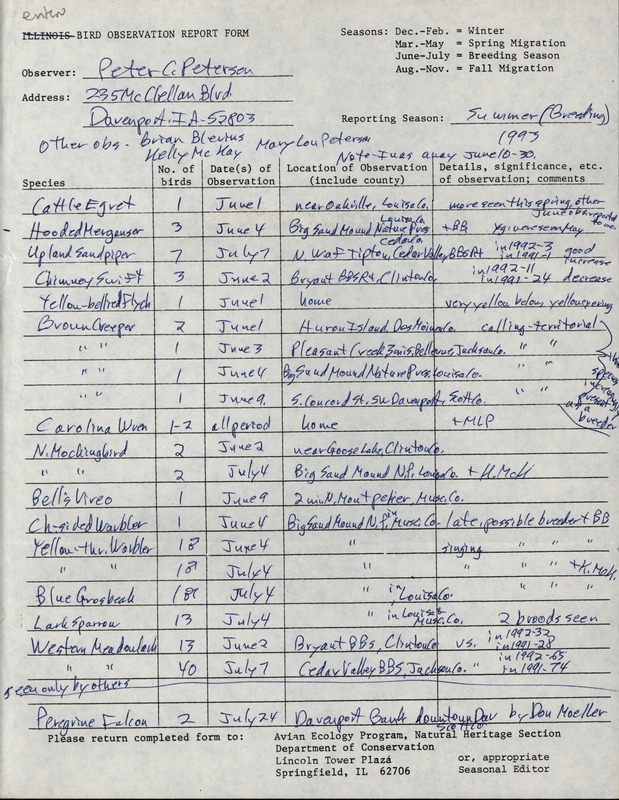 enter
ILLINOIS BIRD OBSERVATION REPORT FORM
Seasons: Dec.-Feb. = Winter
Mar.-May = Spring Migration
June-July = Breeding Season
Aug.-Nov. = Fall Migration
Observer: Peter C. Petersen
Address: 235 McClellan Blvd
Davenport, IA-52803
Reporting Season: Summer (Breeding)
1993
Other obs - Brian Blevins Mary Lou Petersen
Kelly McKay Note-I was away June 10-30.
Species No. of birds Date(s) of Observation Location of Observation (include county) Details, significance, etc. of observation; comments
Cattle Egret 1 June 1 near Oakville, Louisa Co. more seen this spring, other June obs reported to me.
Hooded Merganser 3 June 4 Big Sand Mound Nature Pres. Louisa Co. + BB yg. were seen May
Upland Sandpiper 7 July 7 N. W of Tipton, Cedar Co. Cedar Valley BBS Rt in 1992-3 in 1991-1 good increase
Chimney Swift 3 June 2 Bryant BBS Rt, Clinton Co. in 1992-11 in 1991-24 decrease
Yellow-bellied Flych 1 June 1 home very yellow below, yellow eyering
Brown Creeper 2 June 1 Huron Island, Des Moines Co. calling-territorial
" " 1 June 3 Pleasant Creek, Bellevue, Jackson Co. " "
" " 1 June 4 Big Sand Mound Nature Pres. Louisa Co. " "
" " 1 June 9, S. Concord St, SW Davenport, Scott Co. " "
this species increasing present as a breeder
Carolina Wren 1-2 all period home + MLP
N. Mockingbird 2 June 2 near Goose Lake, Clinton Co.
" " 2 July 4 Big Sand Mound N.P., Louisa Co. + K. McK
Bell's Vireo 1 June 9 2 mi N. Montpelier, Musc. Co.
Ch-sided Warbler 1 June 4 Big Sand Mound N.P., in Musc. Co. late, possible breeder + BB
Yellow-thr. Warbler 1♂ June 4 " singing " "
" " 1♂ July 4 " " " + K. McK.
Blue Grosbeak 1♂ July 4 " in Louisa Co. " "
Lark Sparrow 13 July 4 " in Louisa & Musc. Co. 2 broods seen
Western Meadowlark 13 June 2 Bryant BBS, Clinton Co vs. in 1992-32 in 1991-28
" " 40 July 7 Cedar Valley BBS, Jackson Co. " in 1992-65 in 1991-74
seen only by others
Peregrine Falcon 2 July 24 Davenport Bank downtown Dav Scott Co by Don Moeller
Please return completed form to: Avian Ecology Program, Natural Heritage Section
Department of Conservation
Lincoln Tower Plaza or, appropriate
Springfield, IL 62706 Seasonal Editor